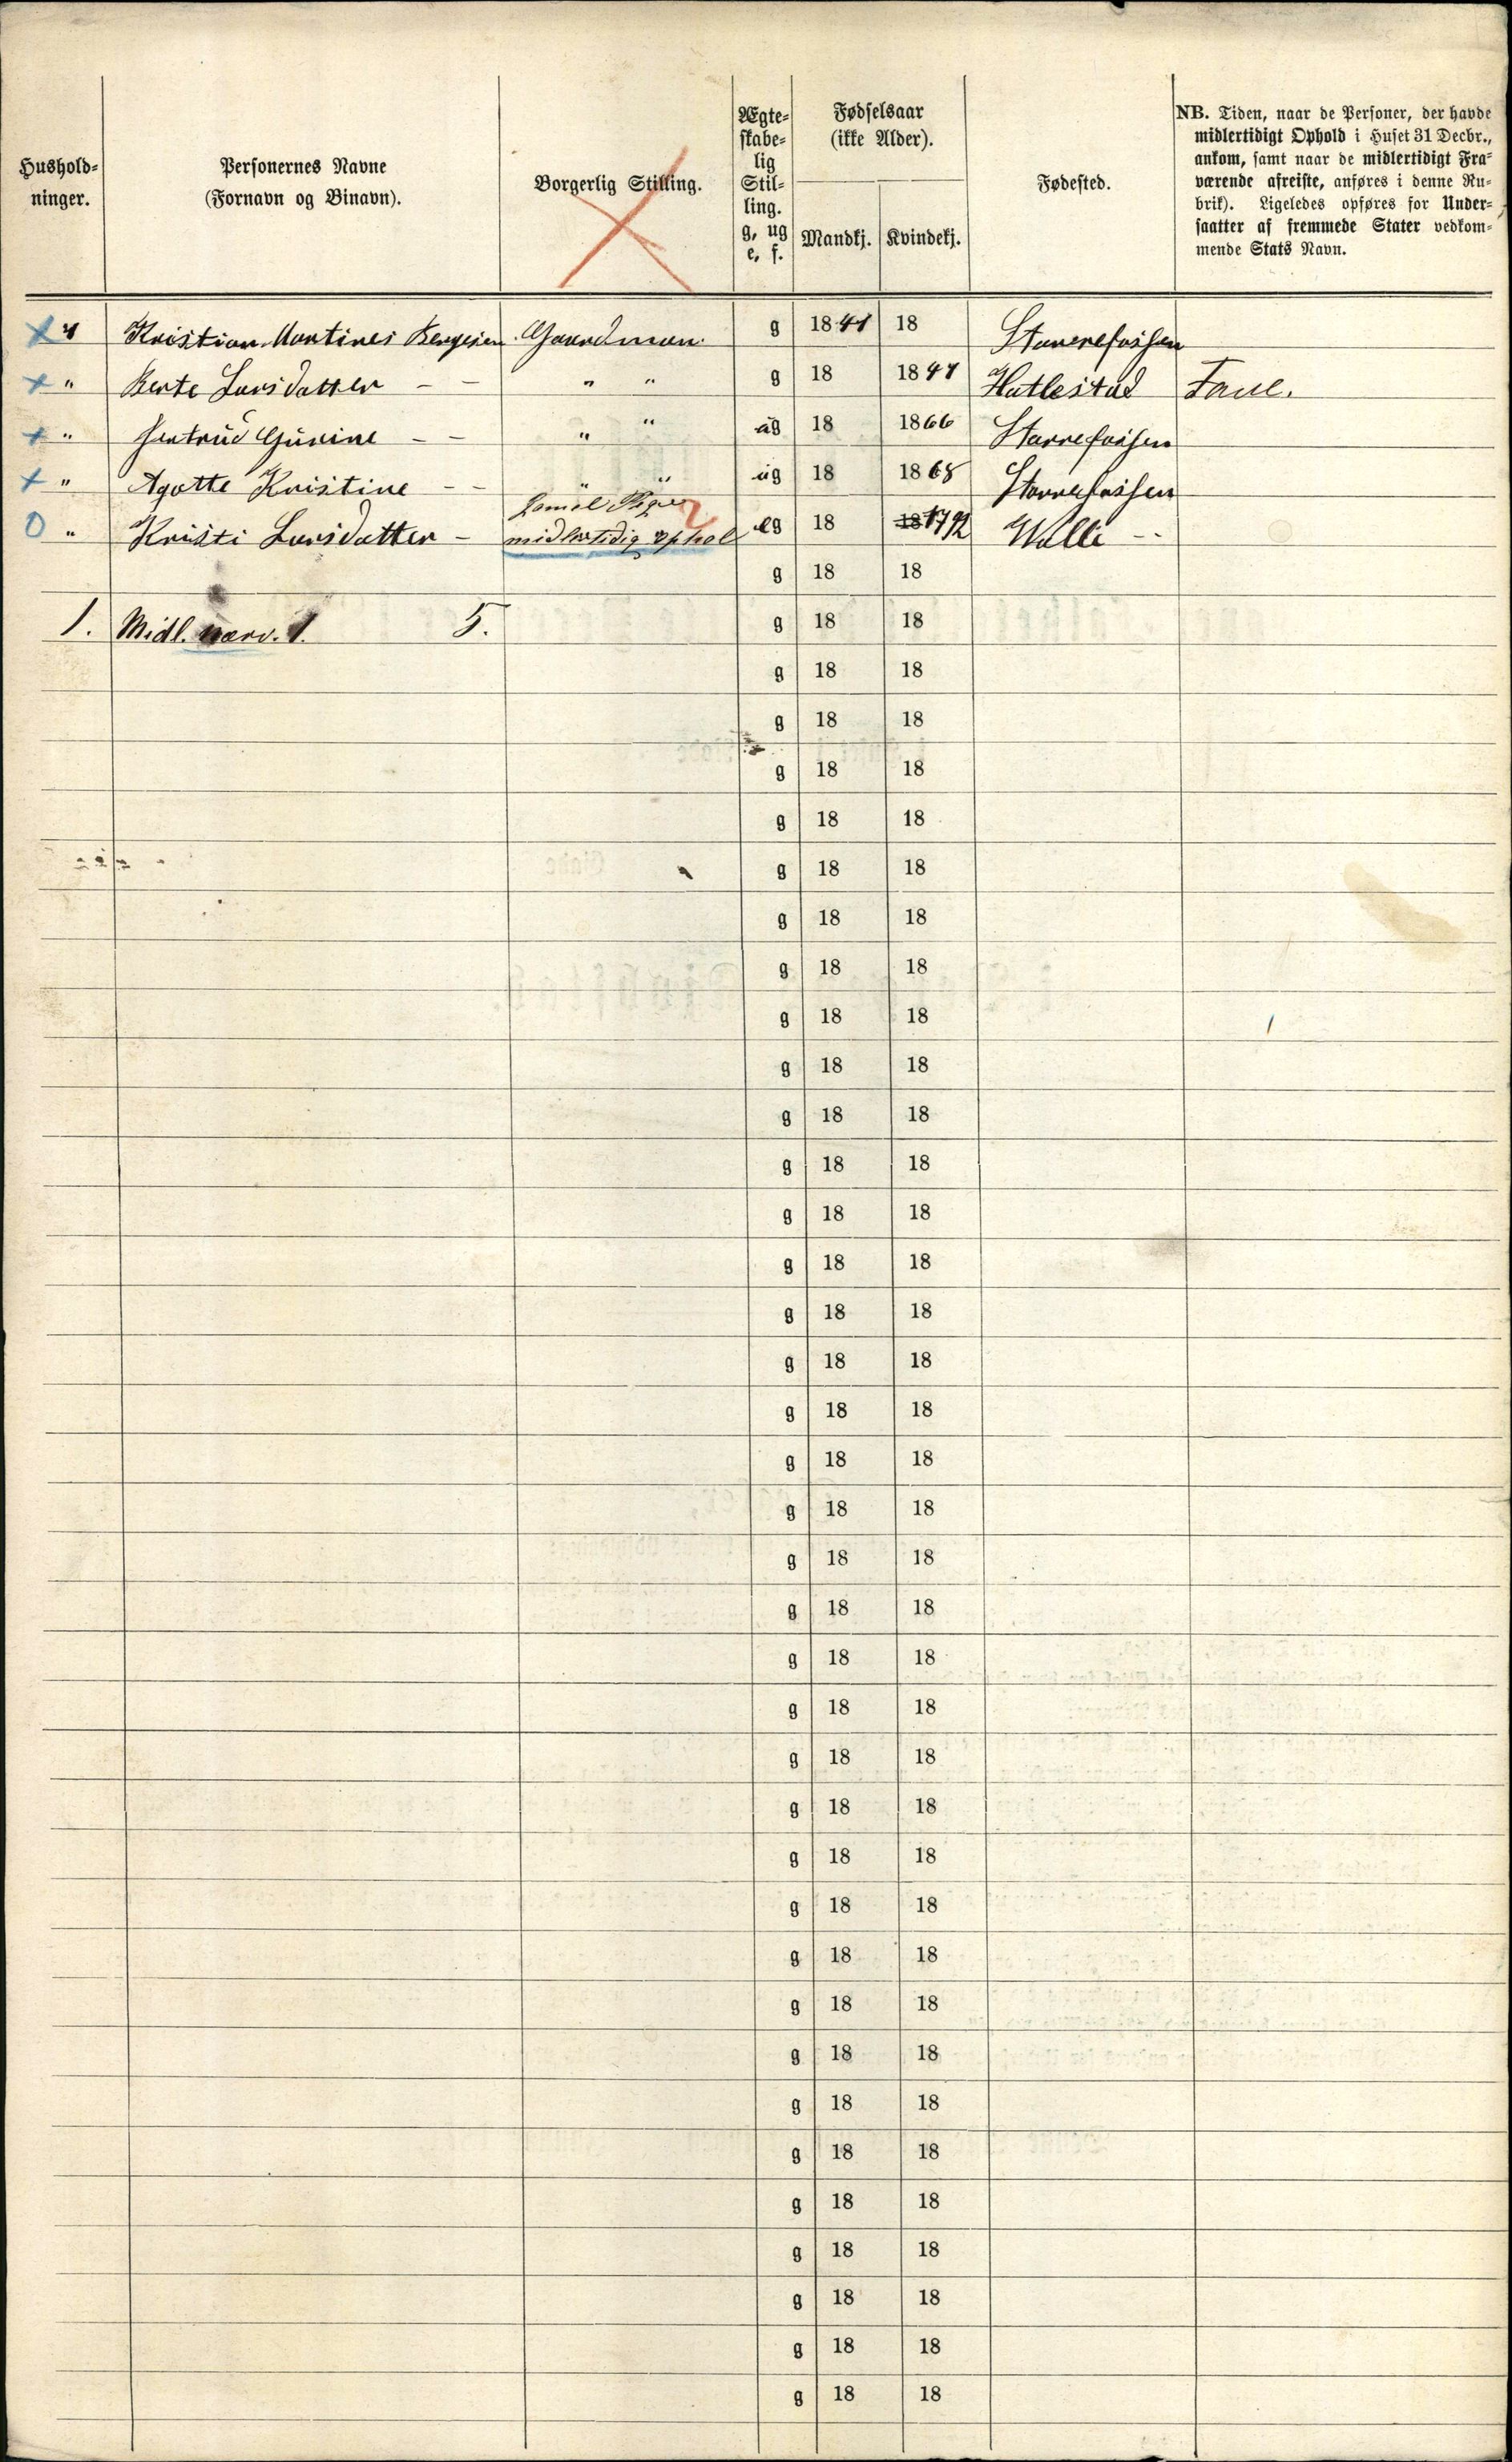 Hushold-
ninger.
Personernes Navne
(Fornavn og Binavn).
Borgerlig Stilling.
Ægte-
skabe-
lig
Stil-
ling.
g, ug
e, f.
Fødselsaar
(ikke Alder).
Mandkj. Kvindekj.
Fødested.
NB. Tiden, naar de Personer, der havde
midlertidigt Ophold i Huset 31 Decbr.,
ankom, samt naar de midlertidigt Fra-
værende afreiste, anføres i denne Ru-
brik). Ligeledes opføres for Under-
saatter af fremmede Stater vedkom-
mende Stats Navn.
Kristian Martines Bergesen Gaardman g 1841 18
" Berte Larsdatter - - " " g 18 1847 Hatlestad
" Jertrud Gurine - - " " ug 18 1866
" Agotte Kristine - - " " ug 18 1868
Gamel Pige
" Kristi Larsdatter - midlertidig ophol eg 18 1792 Walle --
g 18 18
1. Midl. nærv. 1. 5. g 18 18
g 18 18
g 18 18
g 18 18
g 18 18
g 18 18
g 18 18
g 18 18
g 18 18
g 18 18
g 18 18
g 18 18
g 18 18
g 18 18
g 18 18
g 18 18
g 18 18
g 18 18
g 18 18
g 18 18
g 18 18
g 18 18
g 18 18
g 18 18
g 18 18
g 18 18
g 18 18
g 18 18
g 18 18
g 18 18
g 18 18
g 18 18
g 18 18
g 18 18
g 18 18
g 18 18
g 18 18